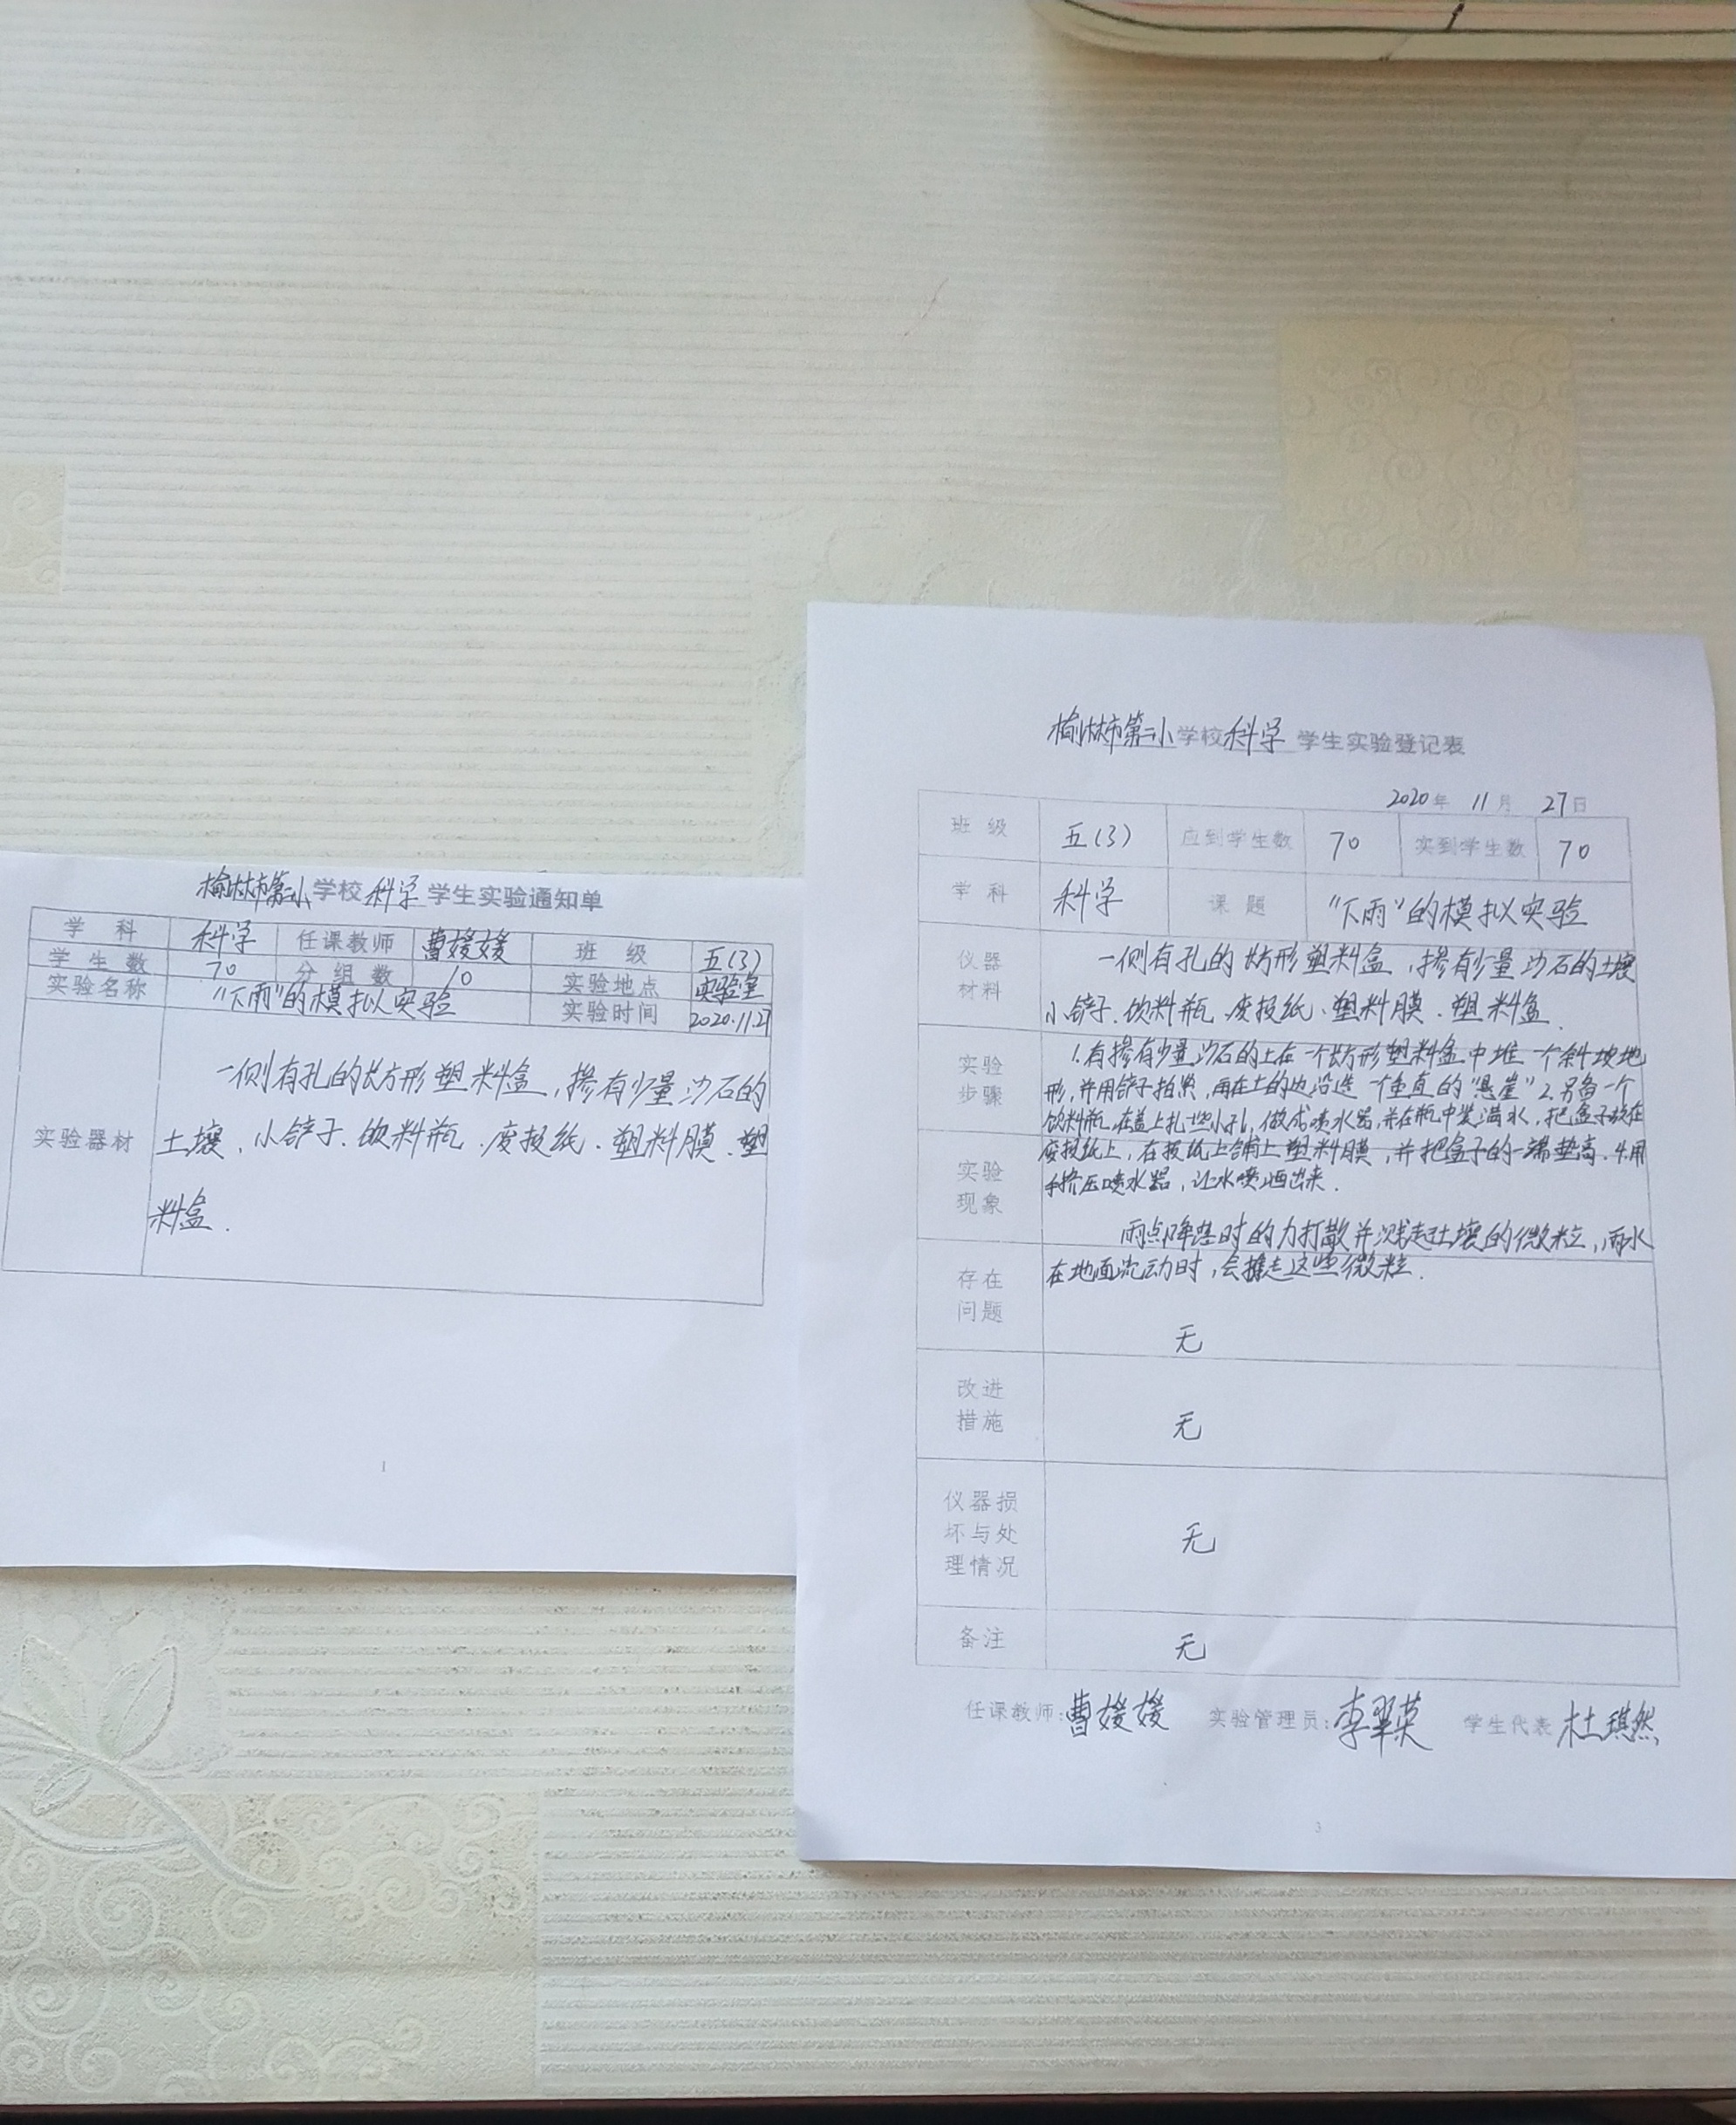 榆林市第二小学校科学学生实验通知单
学科 科学 任课教师 曹媛媛 班级 五(3)
学生数 70 分组数 10 实验地点 实验室
实验名称 "下雨"的模拟实验 实验时间 2020.11.27
实验器材
一侧有孔的长方形塑料盒,掺有少量沙石的
土壤、小铲子、饮料瓶、废报纸、塑料膜、塑
料盒.
1
榆林市第二小学校科学学生实验登记表
2020年 11月 27日
班级 五(3) 应到学生数 70 实到学生数 70
学科 科学 课题 "下雨"的模拟实验
仪器
材料
一侧有孔的长方形塑料盒,掺有少量沙石的土壤
小铲子、饮料瓶、废报纸、塑料膜、塑料盒.
实验
步骤
1.有掺有少量沙石的土在一个长方形塑料盒中堆一个斜坡地
形,并用铲子拍紧,再在土的边沿造一个垂直的"悬崖"2.另备一个
饮料瓶,在盖上扎些小孔,做成喷水器,并在瓶中装满水,把盒子放在
废报纸上,在报纸上铺上塑料膜,并把盒子的一端垫高.4.用
手挤压喷水器,让水喷洒出来.
实验
现象
雨点降落时的力打散并溅走土壤的微粒,雨水
在地面流动时,会推走这些微粒.
存在
问题
无
改进
措施
无
仪器损
坏与处
理情况
无
备注 无
任课教师:曹媛媛 实验管理员:李翠英 学生代表 杜琪然
3